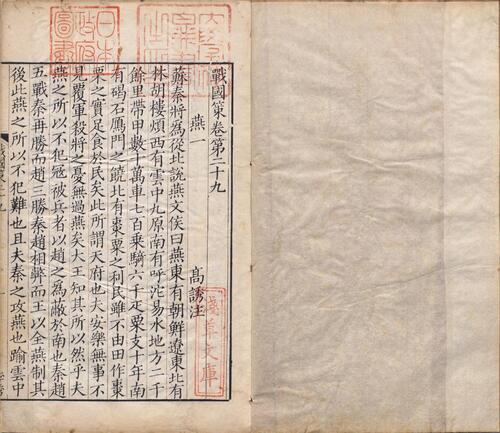 戰國策卷第二十九
燕一
高誘注
蘇秦將為從北說燕文侯曰燕東有朝鮮遼東北有
林胡樓煩西有雲中九原南有呼沱易水地方二千
餘里帶甲數十萬車七百乘騎六千疋粟支十年南
有碣石鴈門之饒北有棗粟之利民雖不由田作棗
栗之實足食於民矣此所謂天府也夫安樂無事不
見覆軍殺將之憂無過燕矣大王知其所以然乎夫
燕之所以不犯寇被兵者以趙之為蔽於南也秦趙
五戰秦再勝而趙三勝秦趙相弊而王以全燕制其
後此燕之所以不犯難也且夫秦之攻燕也踰雲中
日本
政府
圖書
淺草文庫